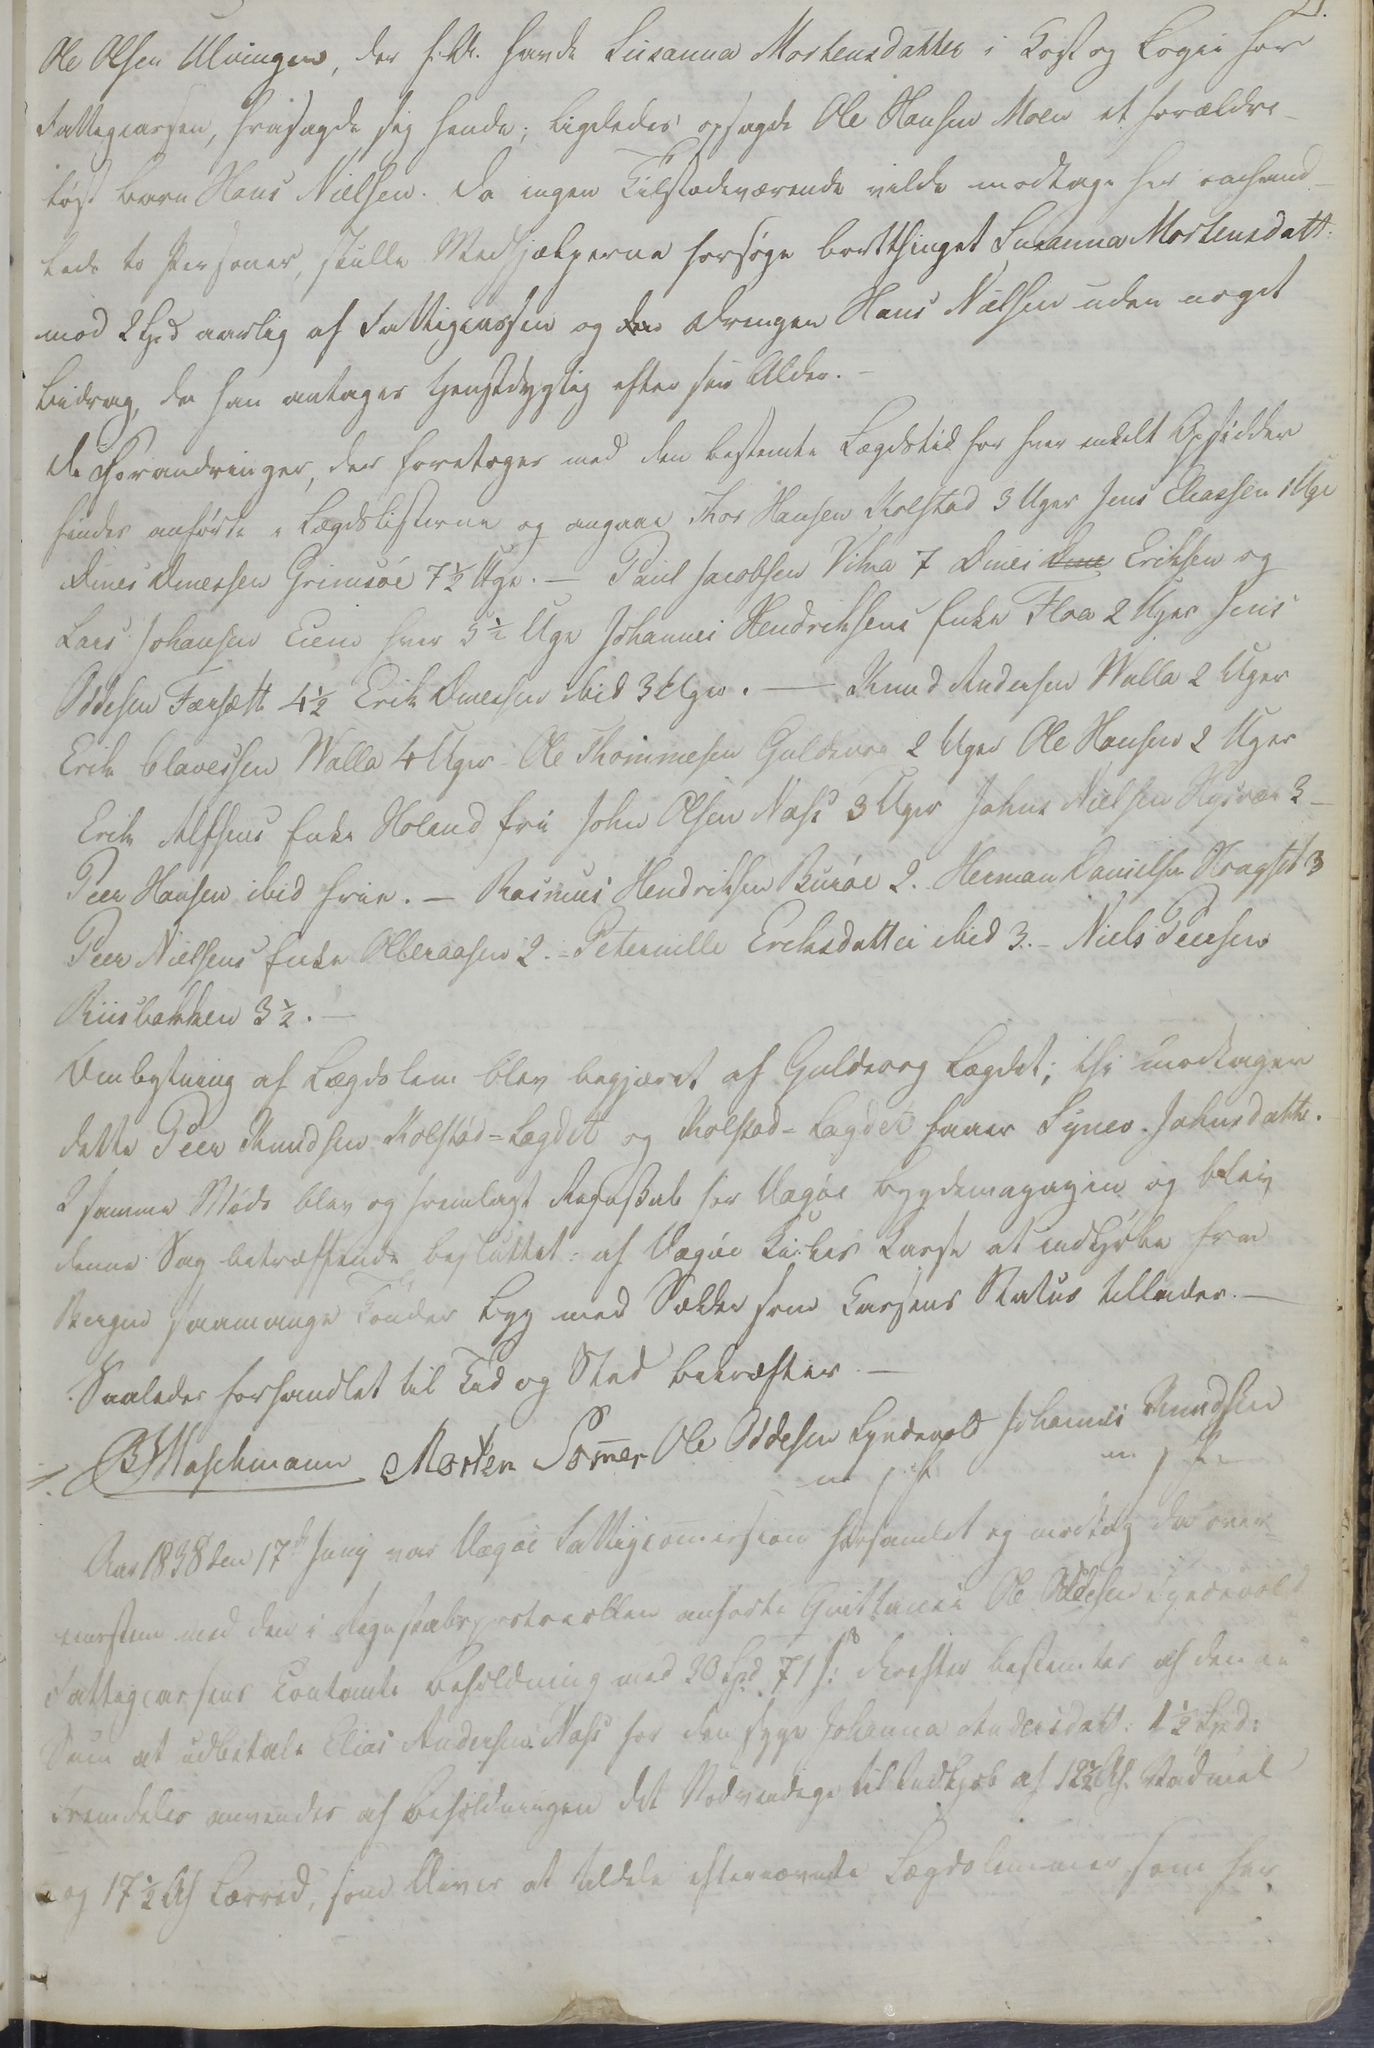 21.
Ole Olsen Ulvingen, der f. A. havde Susanna Mortensdatter i Kost og Logie for
Fattigcassen, frasagde sig hende; ligeledes opsagde Ole Hansen Moen et forældre-
løst barn Hans Nielsen. Da ingen Tilstedeværende vilde modtage her omhand-
lede to Personer, skulle Medhjælperne forsøge bortthinget Susanna Mortensdatt.
mod 2 Spd aarlig af Fattigcassen og den Drengen Hans Nielsen uden noget
Bidrag, da han antages tjenstdygtig efter sin Alder. -
De Forandringer, der foretoges med den bestemte Lægdstid for hver enkelt Opsidder
findes anførte i Lægdslisterne og angaae Thor Hansen Kolstad 3 Uger Jens Eliassen 1 Uge
Dines Dinessen Grimsöe 7 1/2 Uge. - Paul Jacobsen Vilna 7 Dines Eriksen og
Lars Johansen hver 5 1/2 Uge Johannes Hendriksens Enke Floa 2 Uger Jens
Oddesen Færsætt 4 1/2 Erik Dinessen ibid 3 Uger. - Knud Andersen Walla 2 Uger
Erik Clavessen Walla 4 Uger - Ole Thommesen Guldvog 2 Uger Ole Hansen 2 Uger
Erik Alfsens Enke Holand fri John Olsen Næss 3 Uger Johns Nielsen 3 -
Peer Hansen ibid frie. - Rasmus Hendriksen Buröe 2. Herman Danielsen 3
Peer Nielsens Enke Olderaasen 2. - Peternille Eriksdatter ibid 3. - Niels Peersen
Riisbakken 3 1/2. -
Ombytning af Lægdslem blev begjæret af Guldvog Lægdet; thi modtager
dette Peer Knudsen Kolstad-Lægdet og Kolstad-Lægdet faaer Synev. Johnsdatter.
I samme Møde blev og fremlagt Regnskab for Vægöe bygdemagazin og blev
denne Sag betræffende besluttet: af Vægöe Kirkes Kasse at indkjøbe fra
Bergen saamange Tønder Byg med Sække som Cassens Status tillader. -
Saaledes forhandlet til Tid og Sted bekræfter. -
Maschmann Morten Somer Ole Oddesen Lyndvold Johannes Knudsen
m p P
Aar 1838 den 17de Juny var Vægöe Fattigcomission forsamlet og modtog da over-
eensstem med den i Regnskabsprotocollen anførte Qvittance Ole Oddesen Lyndvold
Fattigcassens Contante Beholdning med 30 Spd 71 s: Derefter bestemtes af denne
Sum at udbetale Elias Andersen Næss for den syge Johanna Andersdatt: 1 1/2 Spd:
Fremdeles anvendes af Beholdningen det Nødvendige til Indkjøb af 12 1/2 Al. Vadmel
og 17 1/2 Al Lærred, som bliver at tildele efternævnte Lægdslemmer, som her